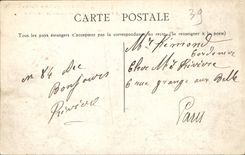 CARTE POSTALE
39
Tous les pays étrangers n'acceptent pas la correspondance au recto. (Se renseigner à la poste)
Mr Rémond
Cordonnier
Chez Mr Rivière
6 rue grange aux Belle
Paris
le 14 Dec
Bonjours
Rivière